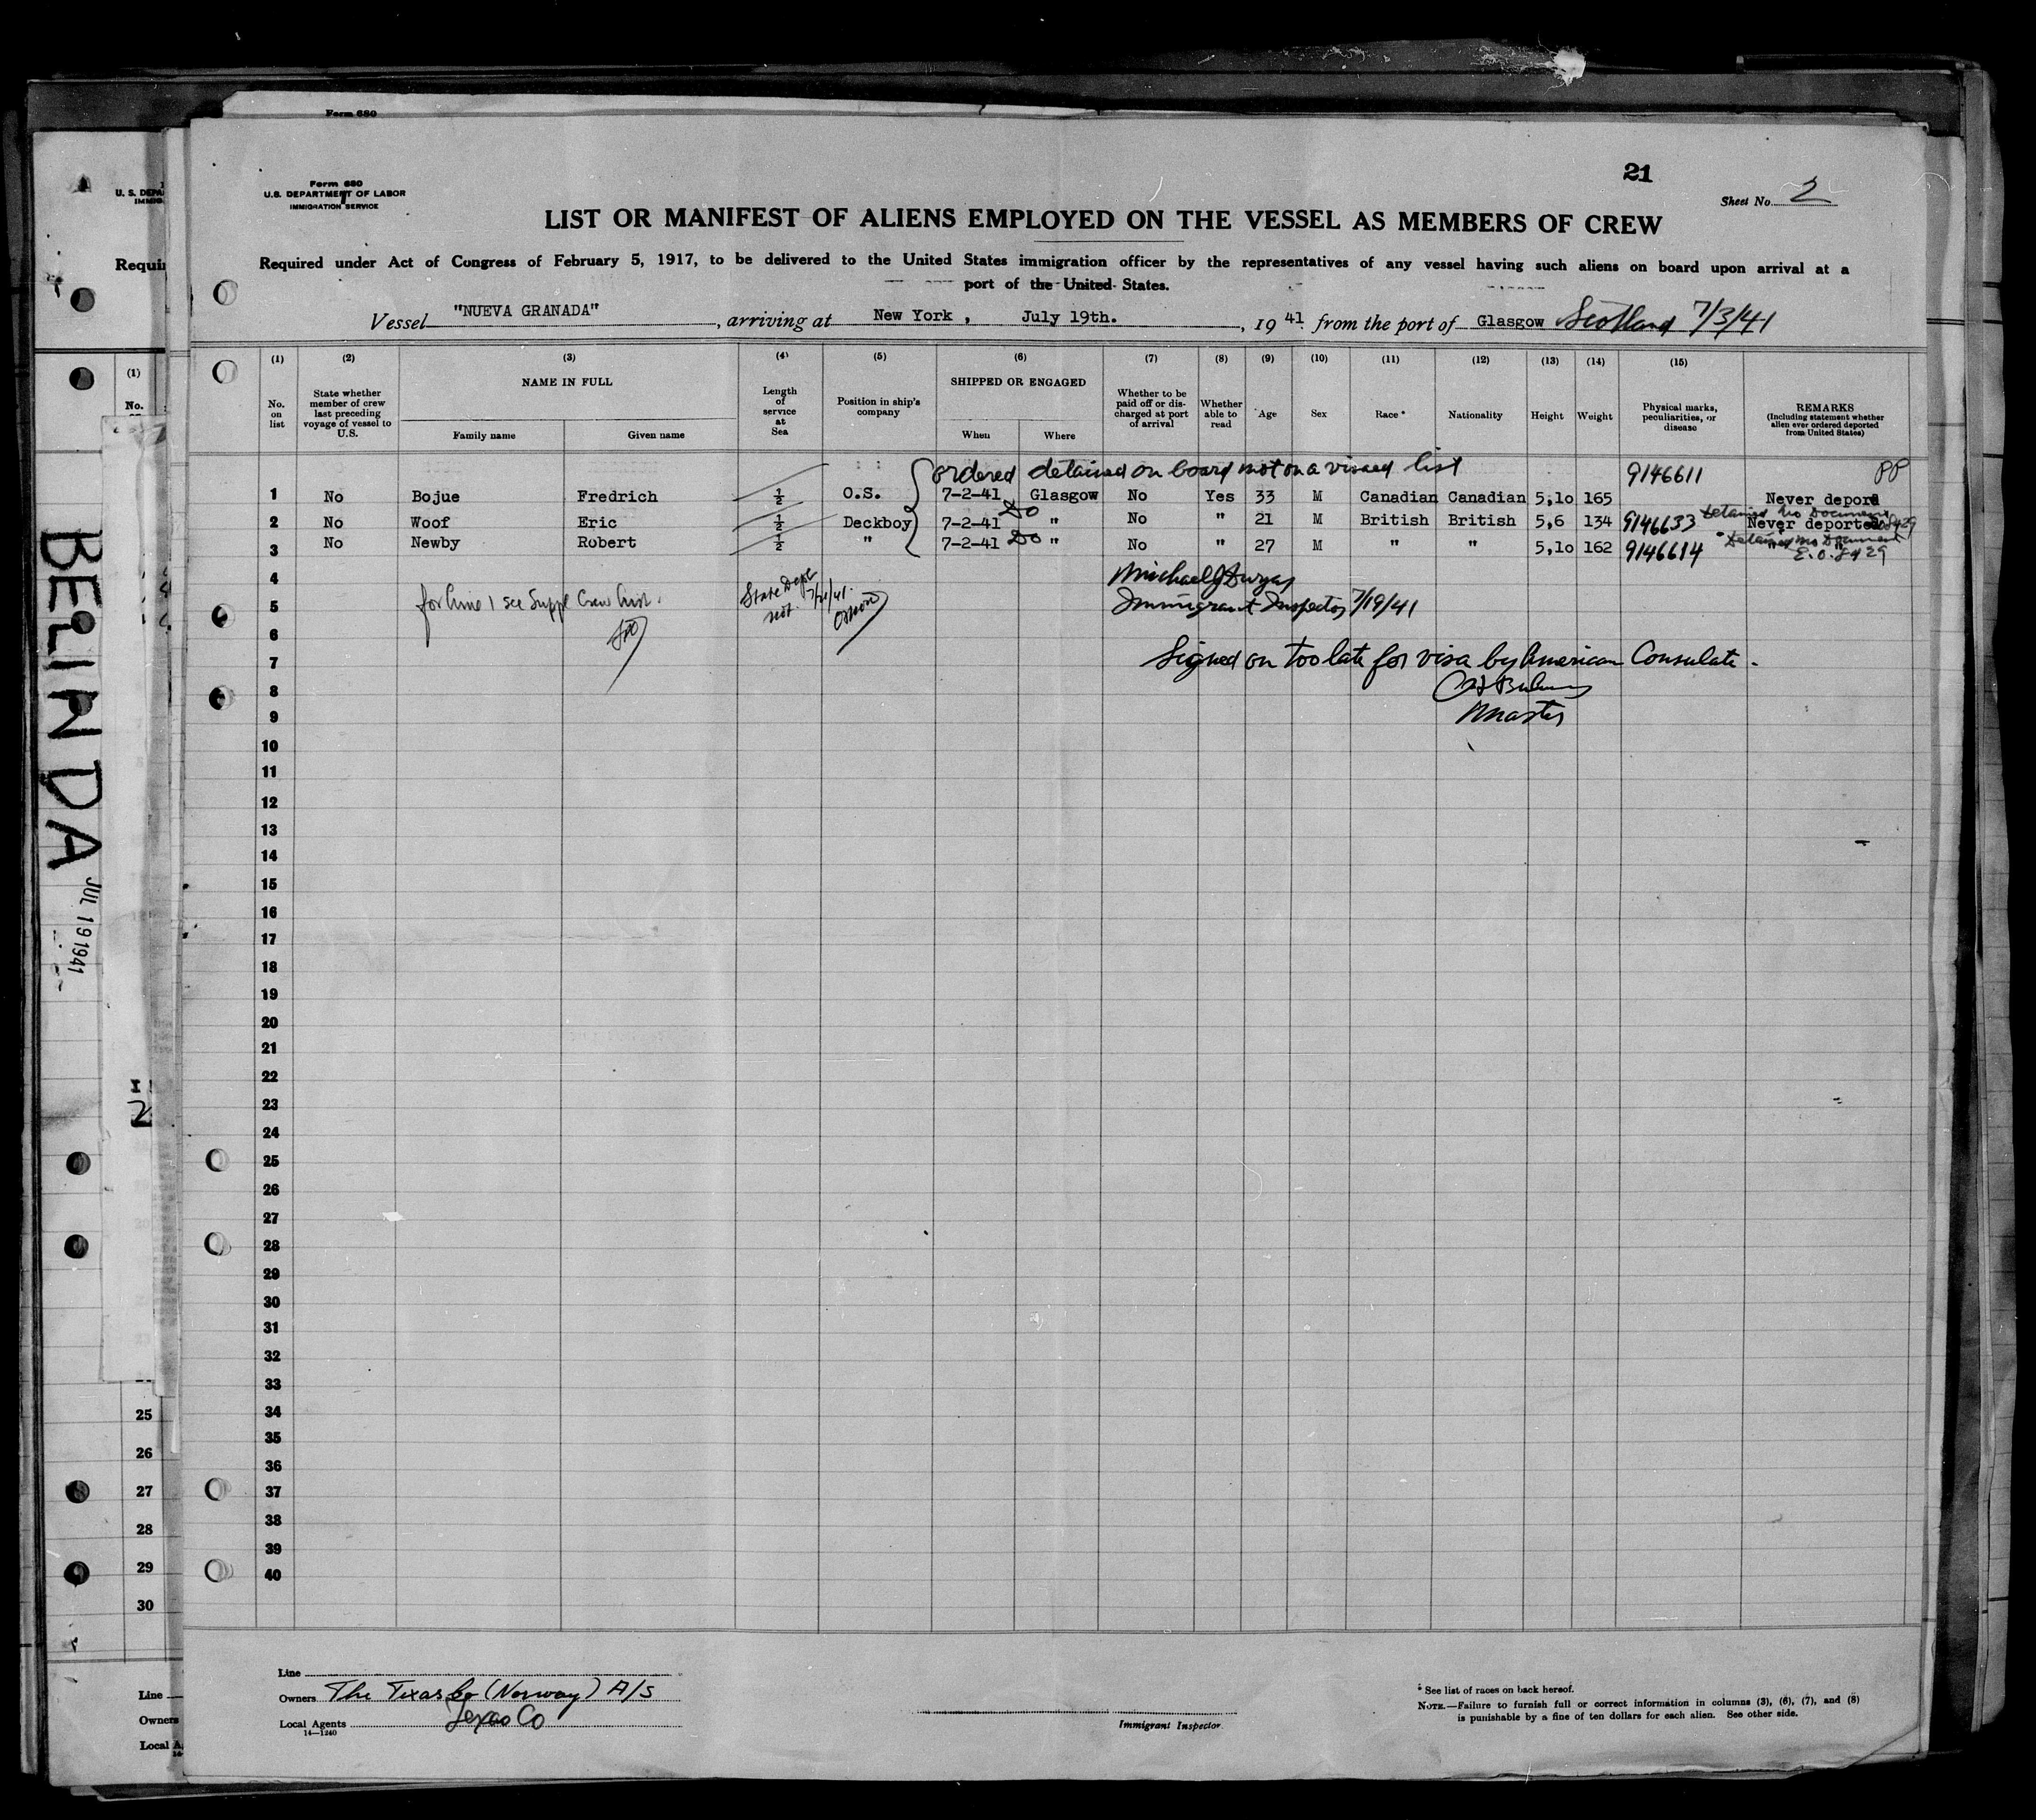 Form 680
21
Form 680
U.S. DEPARTMENT OF LABOR
IMMIGRATION SERVICE
Sheet No. 2
LIST OR MANIFEST OF ALIENS EMPLOYED ON THE VESSEL AS MEMBERS OF CREW
Required under Act of Congress of February 5, 1917, to be delivered to the United States immigration officer by the representatives of any vessel having such aliens on board upon arrival at a
port of the United States.
Vessel "NUEVA GRANADA", arriving at New York, July 19th., 1941 from the port of Glasgow Scotland 7/3/41
(1) (2) (3) (4) (5) (6) (7) (8) (9) (10) (11) (12) (13) (14) (15)
No. on list
State whether member of crew last preceding voyage of vessel to U.S.
NAME IN FULL
Family name Given name
Length of service at Sea
Position in ship's company
SHIPPED OR ENGAGED
When Where
Whether to be paid off or discharged at port of arrival
Whether able to read
Age
Sex
Race *
Nationality
Height
Weight
Physical marks, peculiarities, or disease
REMARKS
(Including statement whether alien ever ordered deported from United States)
ordered detained on board not on a visaed list 9146611 PP
1 No Bojue Fredrich ½ O.S. 7-2-41 Glasgow No Yes 33 M Canadian Canadian 5,10 165 Never depord
Detained No Documents
2 No Woof Eric ½ Deckboy 7-2-41 Do " No " 21 M British British 5,6 134 9146633 Never deported 8429
3 No Newby Robert ½ " 7-2-41 Do " No " 27 M " " 5,10 162 9146614 " Detained no Document
E.O. 8429
4 Michael J Dwyer
5 for line 1 see Suppl Crew List. State Dept not. 7/21/41. Immigrant Inspector 7/19/41
6
7 Signed on too late for visa by American Consulate.
8
9 Master
10
11
12
13
14
15
16
17
18
19
20
21
22
23
24
25
26
27
28
29
30
31
32
33
34
35
36
37
38
39
40
Line
Owners The Texas Co (Norway) A/S
Local Agents Texas Co
14—1240
Immigrant Inspector
* See list of races on back hereof.
NOTE.—Failure to furnish full or correct information in columns (3), (6), (7), and (8)
is punishable by a fine of ten dollars for each alien. See other side.
BELINDA
JUL 19 1941
U. S. DEPA
IMMIG
Requir
(1)
No.
2
25
26
27
28
29
30
Line
Owners
Local A